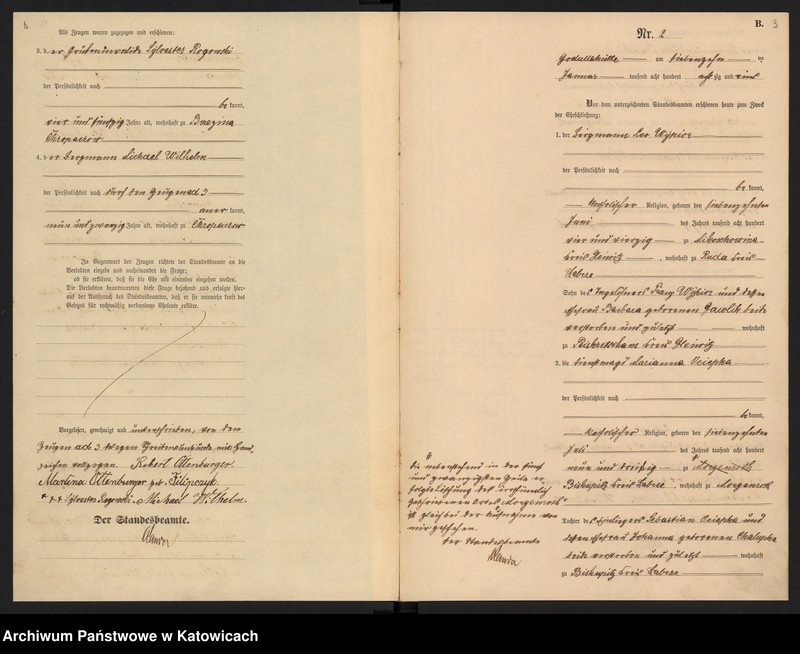 Als Zeugen waren zugezogen und erschienen:
3. der Grubeninvalide Sylvester Rogowski
der Persönlichkeit nach
bekannt,
vier und fünfzig Jahre alt, wohnhaft zu Brzezina
Chropaczow
4. der Bergmann Michael Wilhelm
der Persönlichkeit nach durch den Zeugen ad 3
anerkannt,
neun und zwanzig Jahre alt, wohnhaft zu Chropaczow
In Gegenwart der Zeugen richtete der Standesbeamte an die
Verlobten einzeln und nacheinander die Frage:
ob sie erklären, daß sie die Ehe mit einander eingehen wollen.
Die Verlobten beantworteten diese Frage bejahend und erfolgte hier-
auf der Ausspruch des Standesbeamten, daß er sie nunmehr kraft des
Gesetzes für rechtmäßig verbundene Eheleute erkläre.
Vorgelesen, genehmigt und unterschrieben, von dem
Zeugen ad 3 wegen Schreibensunkunde mit Hand-
zeichen vollzogen. Robert Ottenburger
Martina Ottenburger geb. Filipczyk
+++ Sylvester Rogowski. Michael Wilhelm.
Der Standesbeamte.
B. 3
Nr. 2
Godullahütte am siebenzehn ten
Januar tausend acht hundert achtzig und eins
Vor dem unterzeichneten Standesbeamten erschienen heute zum Zweck
der Eheschließung:
1. der Bergmann Leo
der Persönlichkeit nach
bekannt,
katholischer Religion, geboren den siebenzehnten
Juni des Jahres tausend acht hundert
vier und vierzig zu
Kreis Gleiwitz, wohnhaft zu Ruda Kreis
Zabrze
Sohn des Tagelöhners Franz und dessen
Ehefrau Barbara geborenen Gawolik beide
verstorben und zuletzt wohnhaft
zu Kreis Gleiwitz
2. die Dienstmagd Marianna Sciepka
der Persönlichkeit nach
bekannt,
katholischer Religion, geboren den siebenzehnten
Juli des Jahres tausend acht hundert
neun und dreißig zu Morgenroth
Biskupitz Kreis Zabrze, wohnhaft zu Morgenroth
Tochter des Einliegers Sebastian Sciepka und
dessen Ehefrau Johanna geborenen
beide verstorben und zuletzt wohnhaft
zu Biskupitz Kreis Zabrze
Die nebenstehend in der fünf
und zwanzigsten Zeile er-
folgte Löschung des irrthümlich
geschriebenen Wortes „Morgenroth"
ist gleich bei der Aufnahme von
mir geschehen.
Der Standesbeamte
Archiwum Państwowe w Katowicach